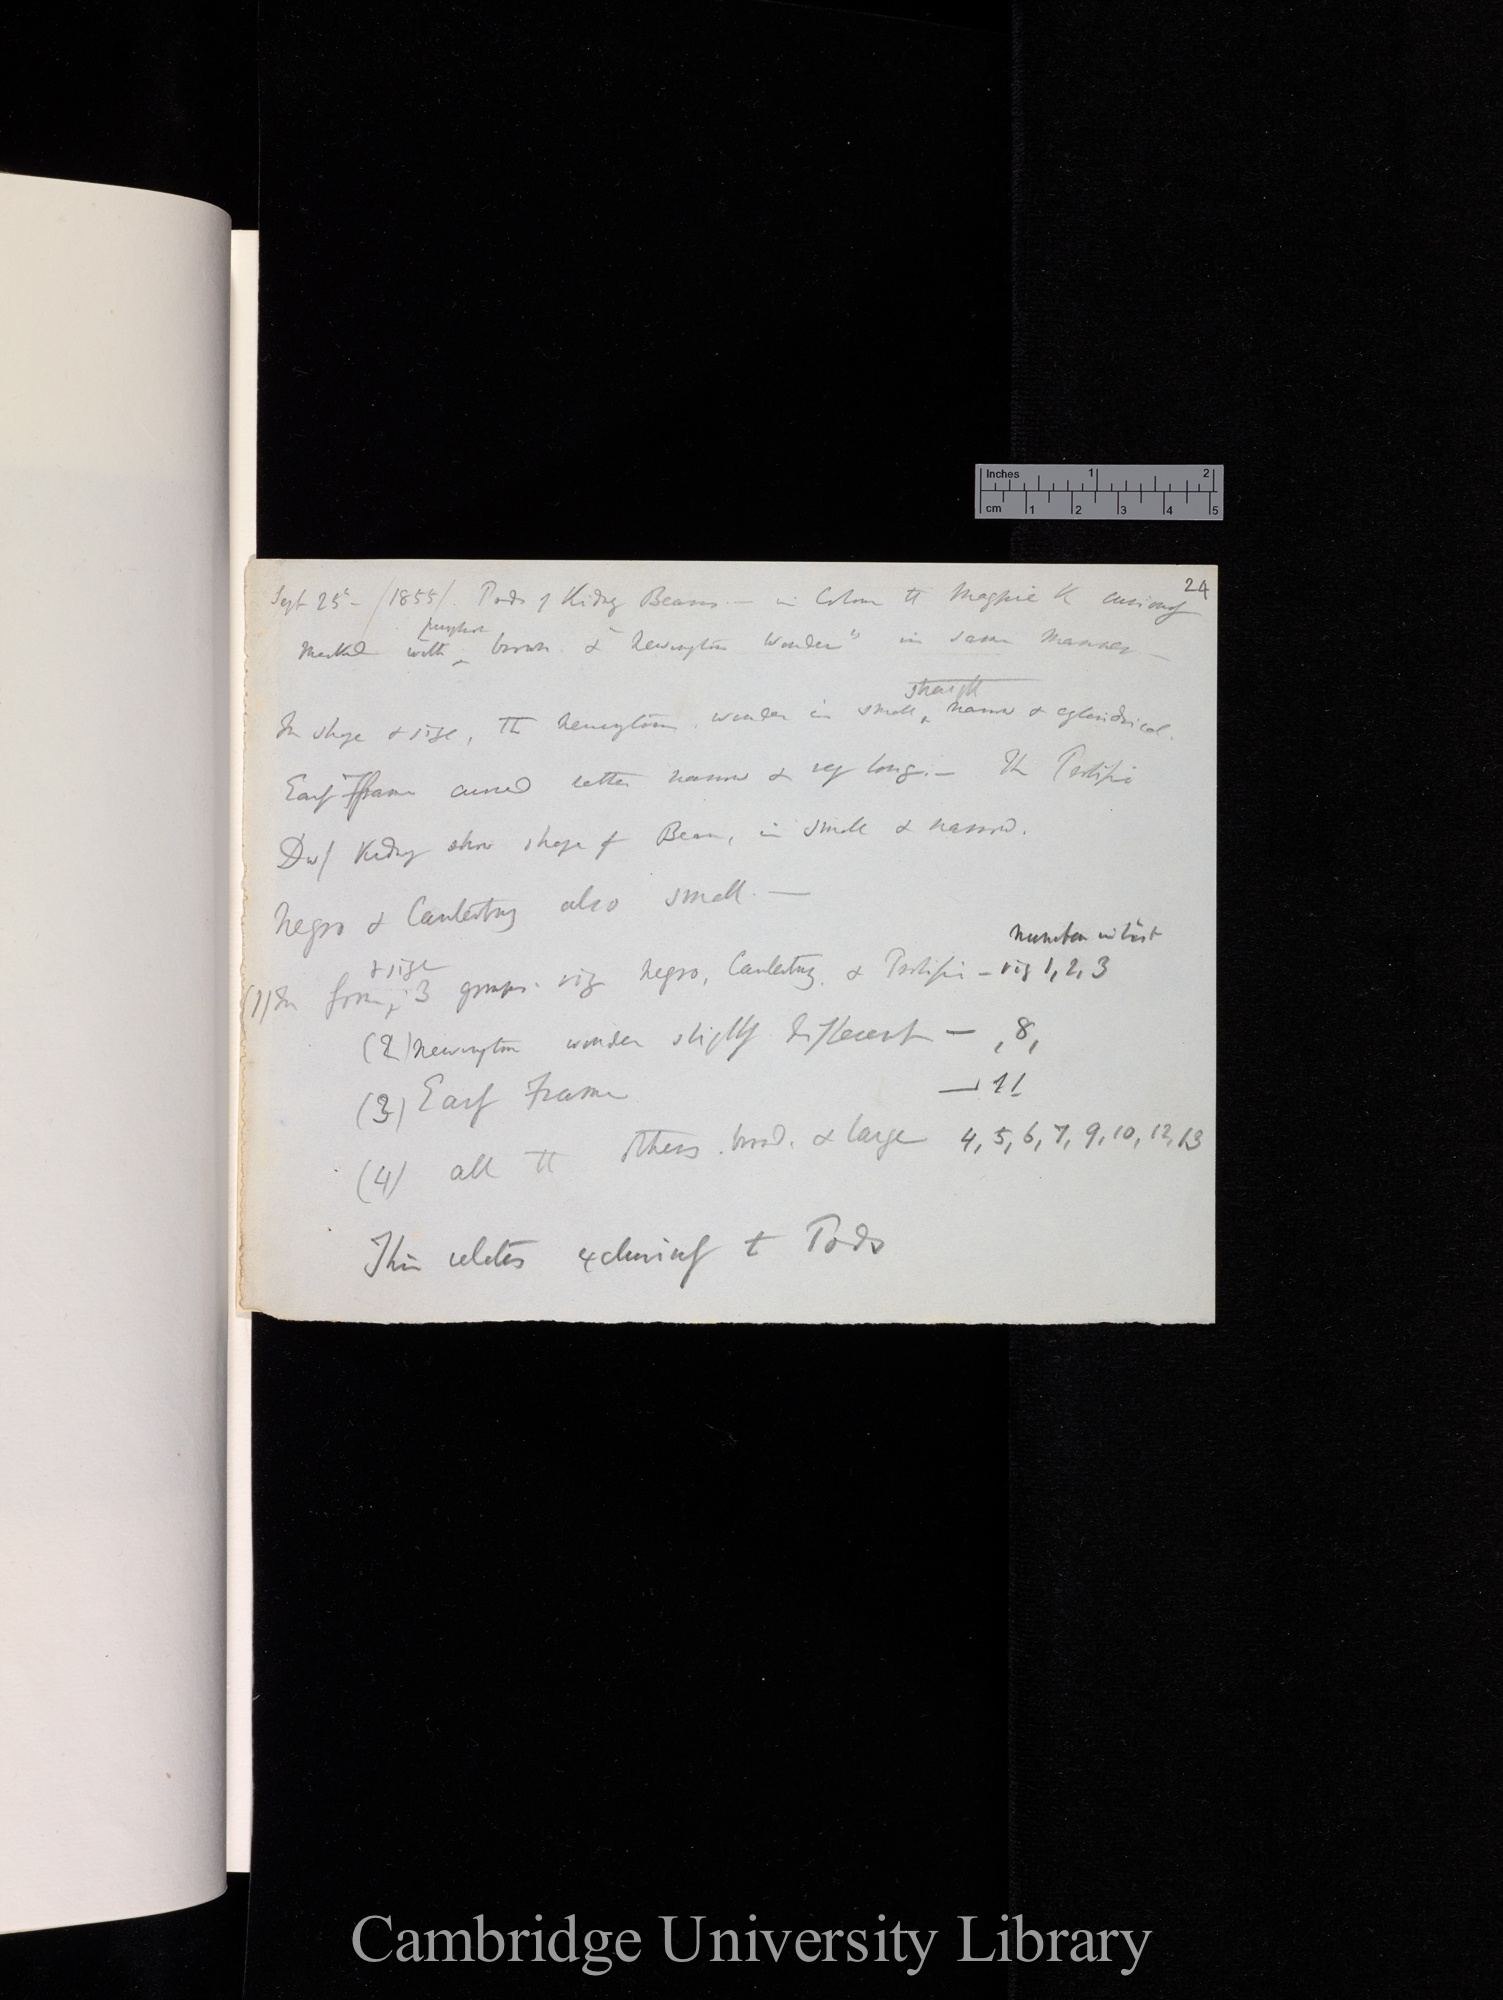 Inches 1 2
cm 1 2 3 4 5
24
Sept 25th - /1855/. Pods of Kidney Beans. — in Colour the Magpie K curiously
purplish
marked with ‸ brown. & "Newington Wonder" in same manner —
straight
In shape & size, The Newington. wonder is small ‸ narrow & cylindrical.
Early Frame curved rather narrow & very long. — The Prolific
Dwf Kidney show shape of Bean, is small & narrow.
Negro & Canterbury also small. —
number in list
& size
(1) In form, ‸ 3 groups. viz Negro, Canterbury, & Prolific — viz 1, 2, 3
(2) Newington wonder slightly different — , 8,
(3) Early Frame — 11
(4) all the others. broad. & large 4, 5, 6, 7, 9, 10, 12, 13
This relates exclusively to Pods
Cambridge University Library